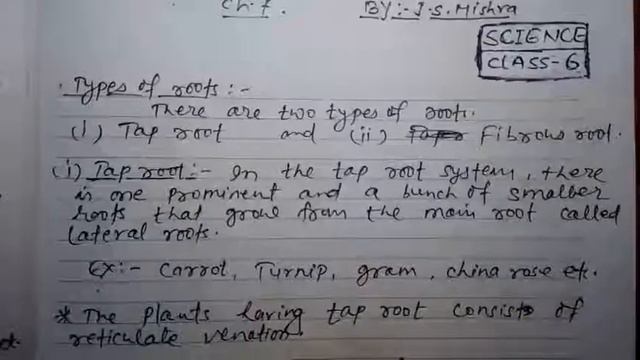 Ch.7.
BY:- J.S. Mishra
SCIENCE
CLASS-6
Types of roots:-
There are two types of roots.
(i) Tap root and (ii) Fibrous root.
(i) Tap root:- In the tap root system, there
is one prominent and a bunch of smaller
roots that grow from the main root called
lateral roots.
Ex:- Carrot, Turnip, gram, china rose etc.
* The plants having tap root consists of
reticulate venation.